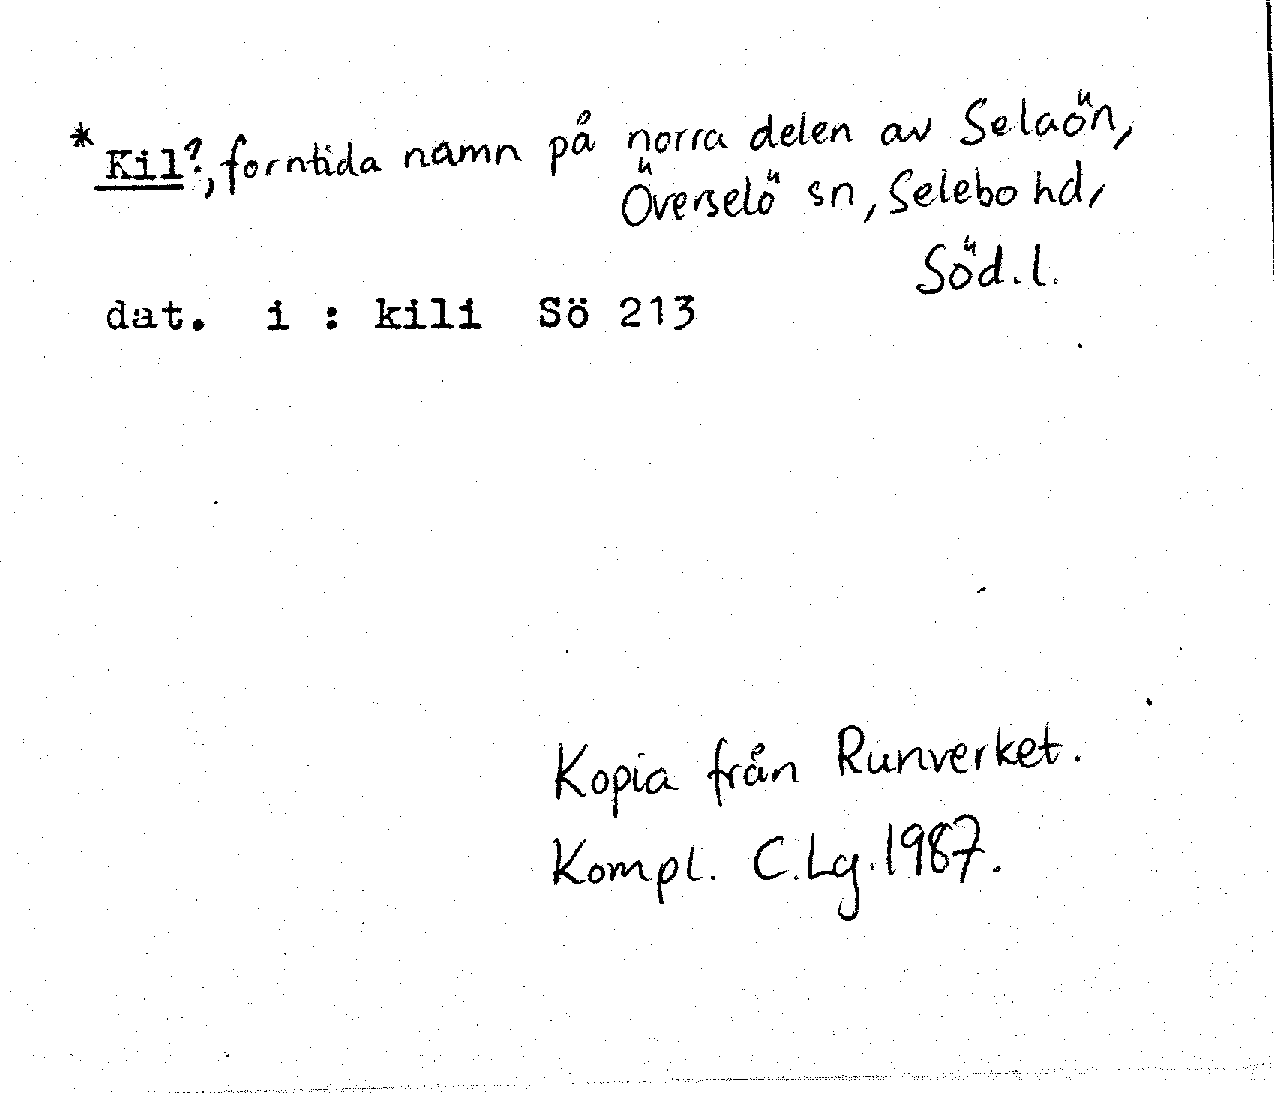 *Kil?, forntida namn på norra delen av Selaön,
Överselö sn, Selebo hd,
Söd.l.
dat. i : kili Sö 213
Kopia från Runverket.
Kompl. C.Lg.1987.